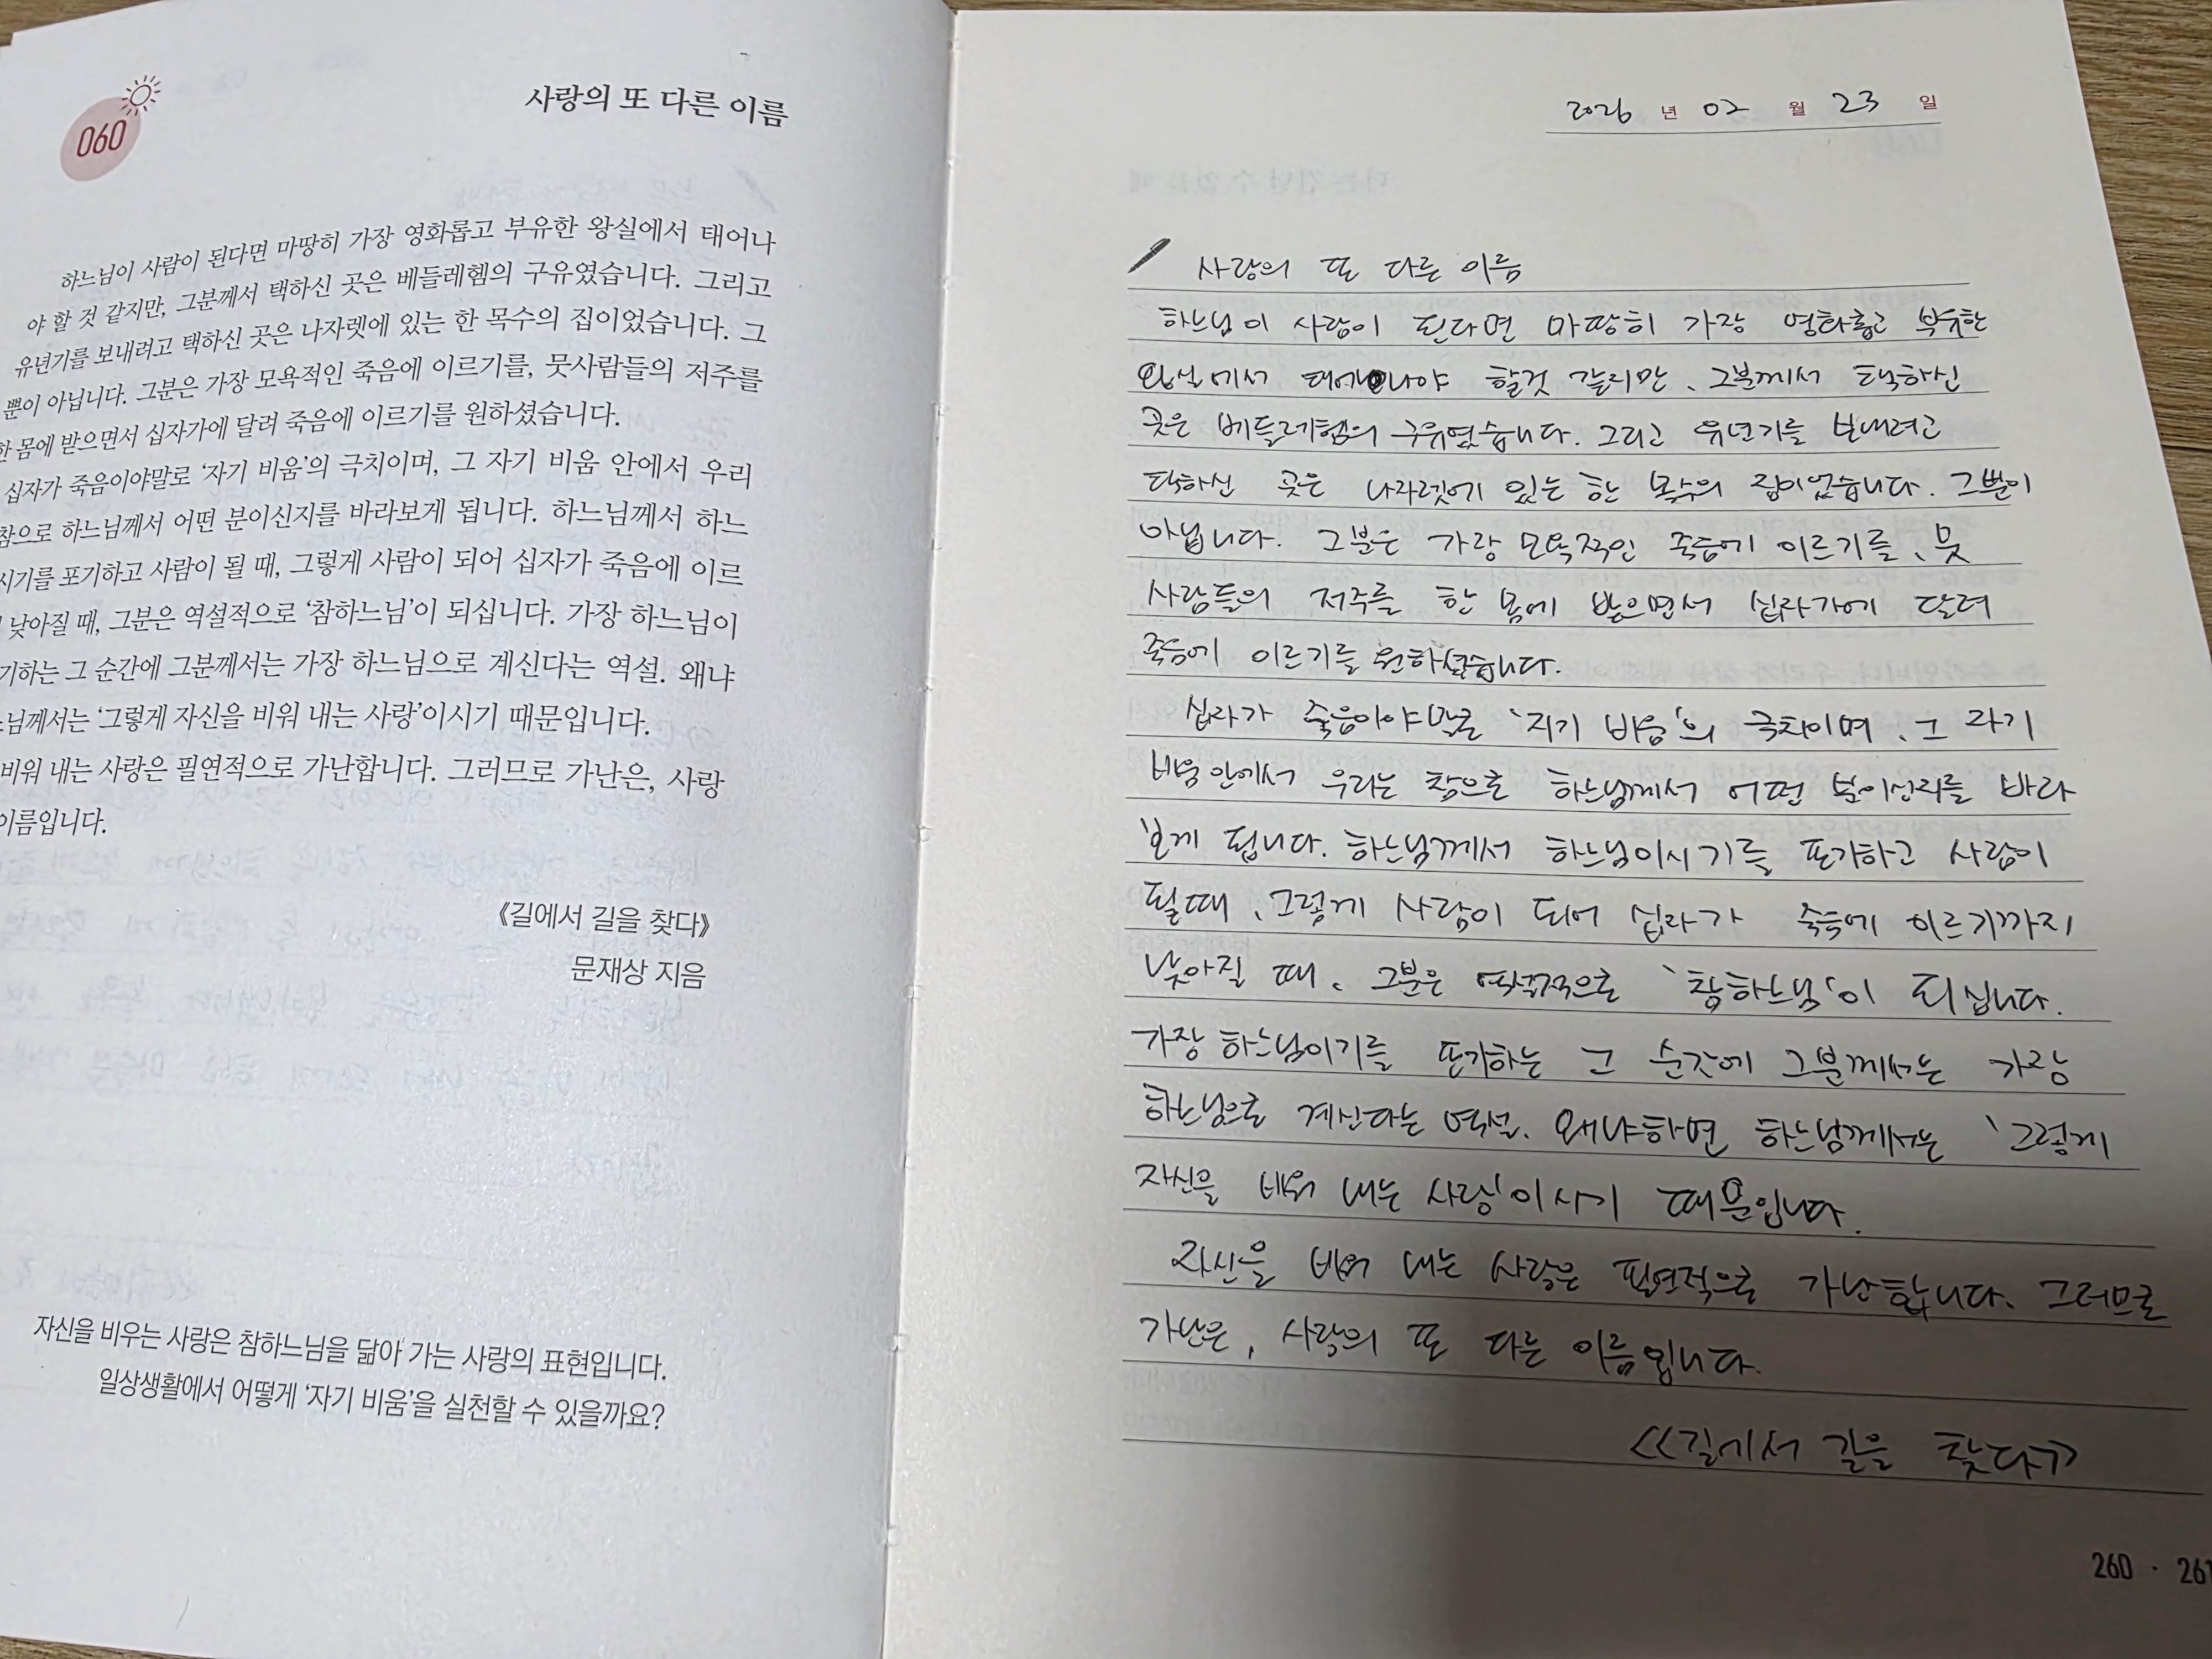 060
사랑의 또 다른 이름
하느님이 사람이 된다면 마땅히 가장 영화롭고 부유한 왕실에서 태어나
야 할 것 같지만, 그분께서 택하신 곳은 베들레헴의 구유였습니다. 그리고
유년기를 보내려고 택하신 곳은 나자렛에 있는 한 목수의 집이었습니다. 그
뿐이 아닙니다. 그분은 가장 모욕적인 죽음에 이르기를, 뭇사람들의 저주를
한 몸에 받으면서 십자가에 달려 죽음에 이르기를 원하셨습니다.
십자가 죽음이야말로 ‘자기 비움’의 극치이며, 그 자기 비움 안에서 우리
참으로 하느님께서 어떤 분이신지를 바라보게 됩니다. 하느님께서 하느
시기를 포기하고 사람이 될 때, 그렇게 사람이 되어 십자가 죽음에 이르
낮아질 때, 그분은 역설적으로 ‘참하느님’이 되십니다. 가장 하느님이
기하는 그 순간에 그분께서는 가장 하느님으로 계신다는 역설. 왜냐
님께서는 ‘그렇게 자신을 비워 내는 사랑’이시기 때문입니다.
비워 내는 사랑은 필연적으로 가난합니다. 그러므로 가난은, 사랑
이름입니다.
《길에서 길을 찾다》
문재상 지음
자신을 비우는 사랑은 참하느님을 닮아 가는 사랑의 표현입니다.
일상생활에서 어떻게 ‘자기 비움’을 실천할 수 있을까요?
2026 년 02 월 23 일
사랑의 또 다른 이름
하느님이 사람이 된다면 마땅히 가장 영화롭고 부유한
왕실에서 태어나야 할것 같지만, 그분께서 택하신
곳은 베들레헴의 구유였습니다. 그리고 유년기를 보내려고
택하신 곳은 나자렛에 있는 한 목수의 집이었습니다. 그뿐이
아닙니다. 그분은 가장 모욕적인 죽음에 이르기를, 뭇
사람들의 저주를 한 몸에 받으면서 십자가에 달려
죽음에 이르기를 원하셨습니다.
십자가 죽음이야말로 ‘자기 비움’의 극치이며, 그 자기
비움 안에서 우리는 참으로 하느님께서 어떤 분이신지를 바라
보게 됩니다. 하느님께서 하느님이시기를 포기하고 사람이
될때, 그렇게 사람이 되어 십자가 죽음에 이르기까지
낮아질 때, 그분은 역설적으로 ‘참하느님’이 되십니다.
가장 하느님이기를 포기하는 그 순간에 그분께서는 가장
하느님으로 계신다는 역설. 왜냐하면 하느님께서는 ‘그렇게
자신을 비워 내는 사랑’이시기 때문입니다.
자신을 비워 내는 사랑은 필연적으로 가난합니다. 그러므로
가난은, 사랑의 또 다른 이름입니다.
<<길에서 길을 찾다>>
260 · 261